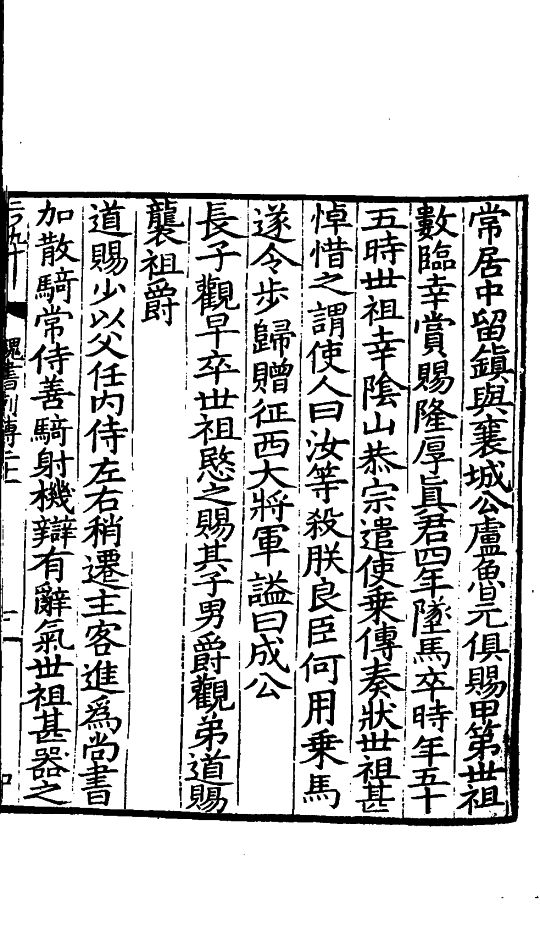 常居中留鎮與襄城公盧魯元俱賜甲第世祖
數臨幸賞賜隆厚眞君四年墜馬卒時年五十
五時世祖幸陰山恭宗遣使乘傳奏狀世祖甚
悼惜之謂使人曰汝等殺朕良臣何用乘馬
遂令步歸贈征西大將軍謚曰成公
長子觀早卒世祖愍之賜其子男爵觀弟道賜
襲祖爵
道賜少以父任內侍左右稍遷主客進爲尚書
加散騎常侍善騎射機辯有辭氣世祖甚器之
魏書列傳二十